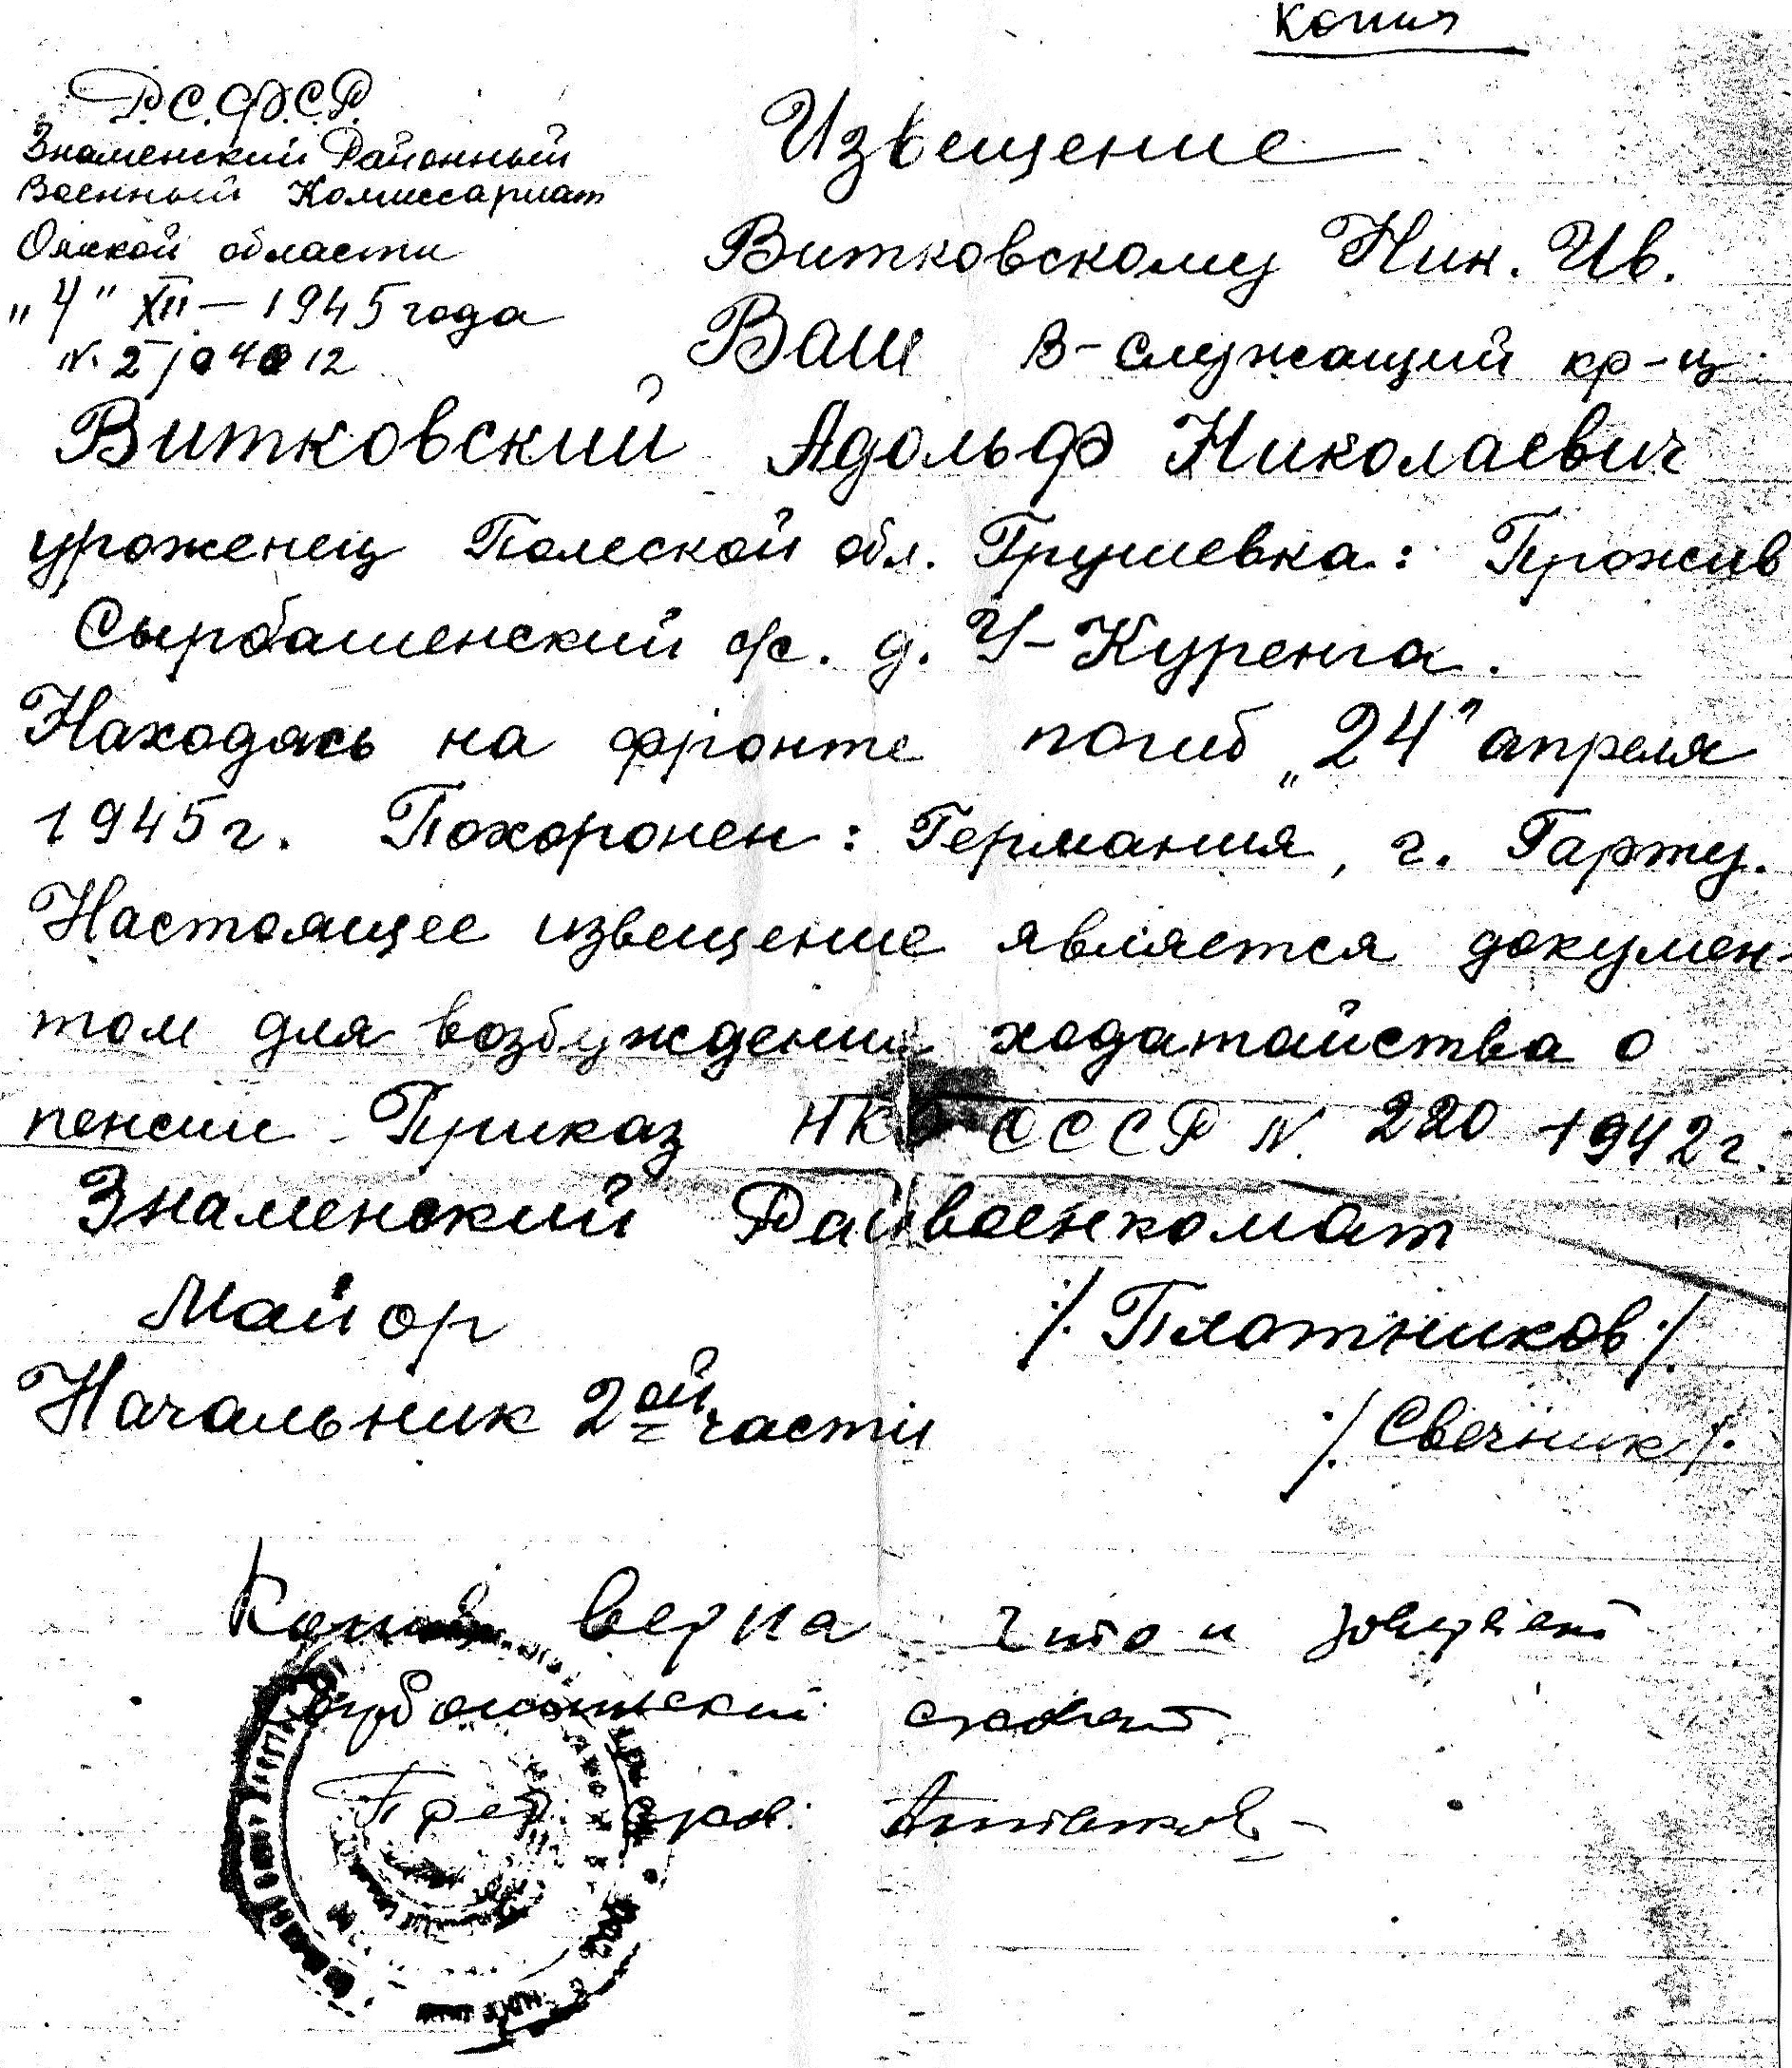 копия
Р.С.Ф.С.Р.
Знаменский Районный
Военный Комиссариат
Омской области
"4" XII – 1945 года
N. 2/04012
Извещение
Витковскому Ник. Ив.
Ваш в-служащий кр-ц
Витковский Адольф Николаевич
уроженец Полеской обл. Грушевка: Прожив
Сырбашенский с/с. д. У-Куренга.
Находясь на фронте погиб "24" апреля
1945 г. Похоронен: Германия, г. Гартц.
Настоящее извещение является докумен-
том для возбуждения ходатайства о
пенсии – Приказ НКО СССР N. 220 1942 г.
Знаменский Райвоенкомат
Майор ./. Плотников ./.
Начальник 2ой части ./. Свечник ./.
Копия верна что и заверяет
сельсовет.
Пред